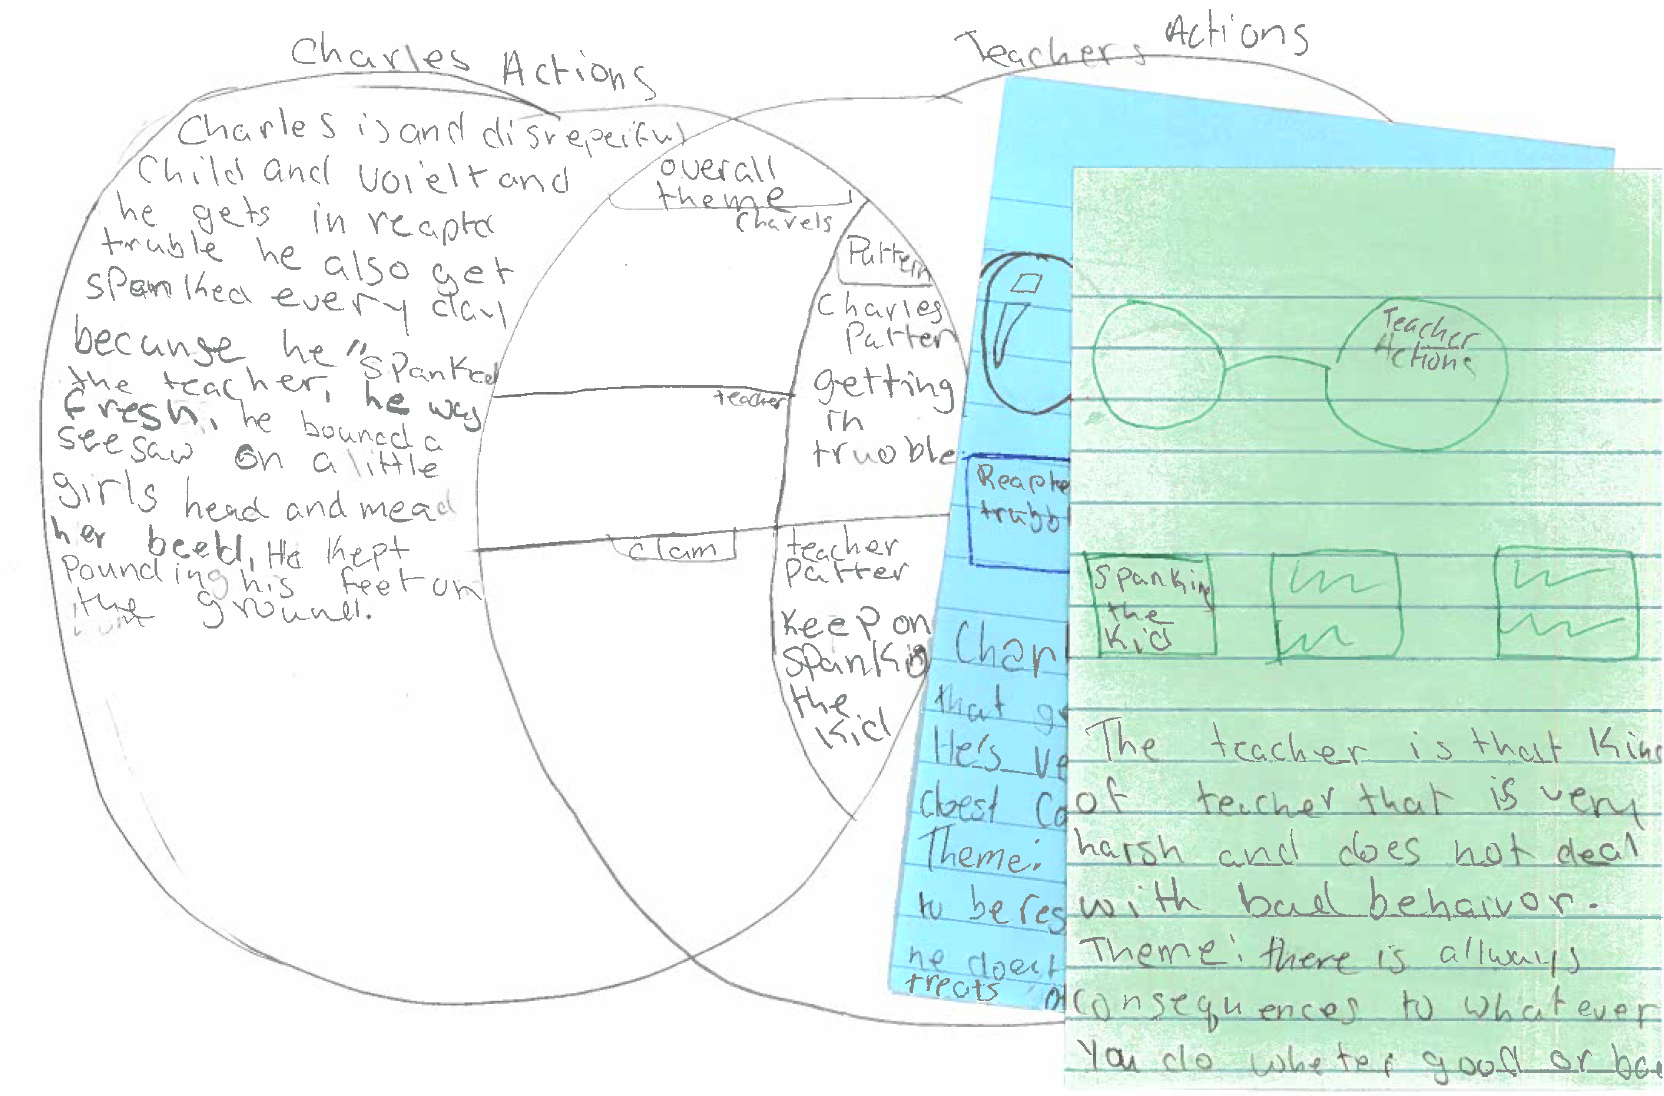 Charles Actions
Teachers Actions
Charles is and disrepeiful
Child and voielt and
he gets in reapta
truble he also get
spanked every day
becunse he "spanked
the teacher, he was
fresh, he bouncd a
seesaw on a little
girls head and mead
her beeld, He kept
Pounding his feet on
the ground.
overall
theme
Charels
teacher
clam
Pattern
Charles
Patter
getting
in
truoble
teacher
Patter
Keep on
spankig
the
kid
Reapte
trubb
Charl
that ge
He's ve
doest Ca
Theme:
to be res
he doest
treats
Teacher
Actions
Spanking
the
kid
The teacher is that Kind
of teacher that is very
harsh and does not deal
with bad behaivor.
Theme: there is allways
consequences to whatever
You do wheter good or bad